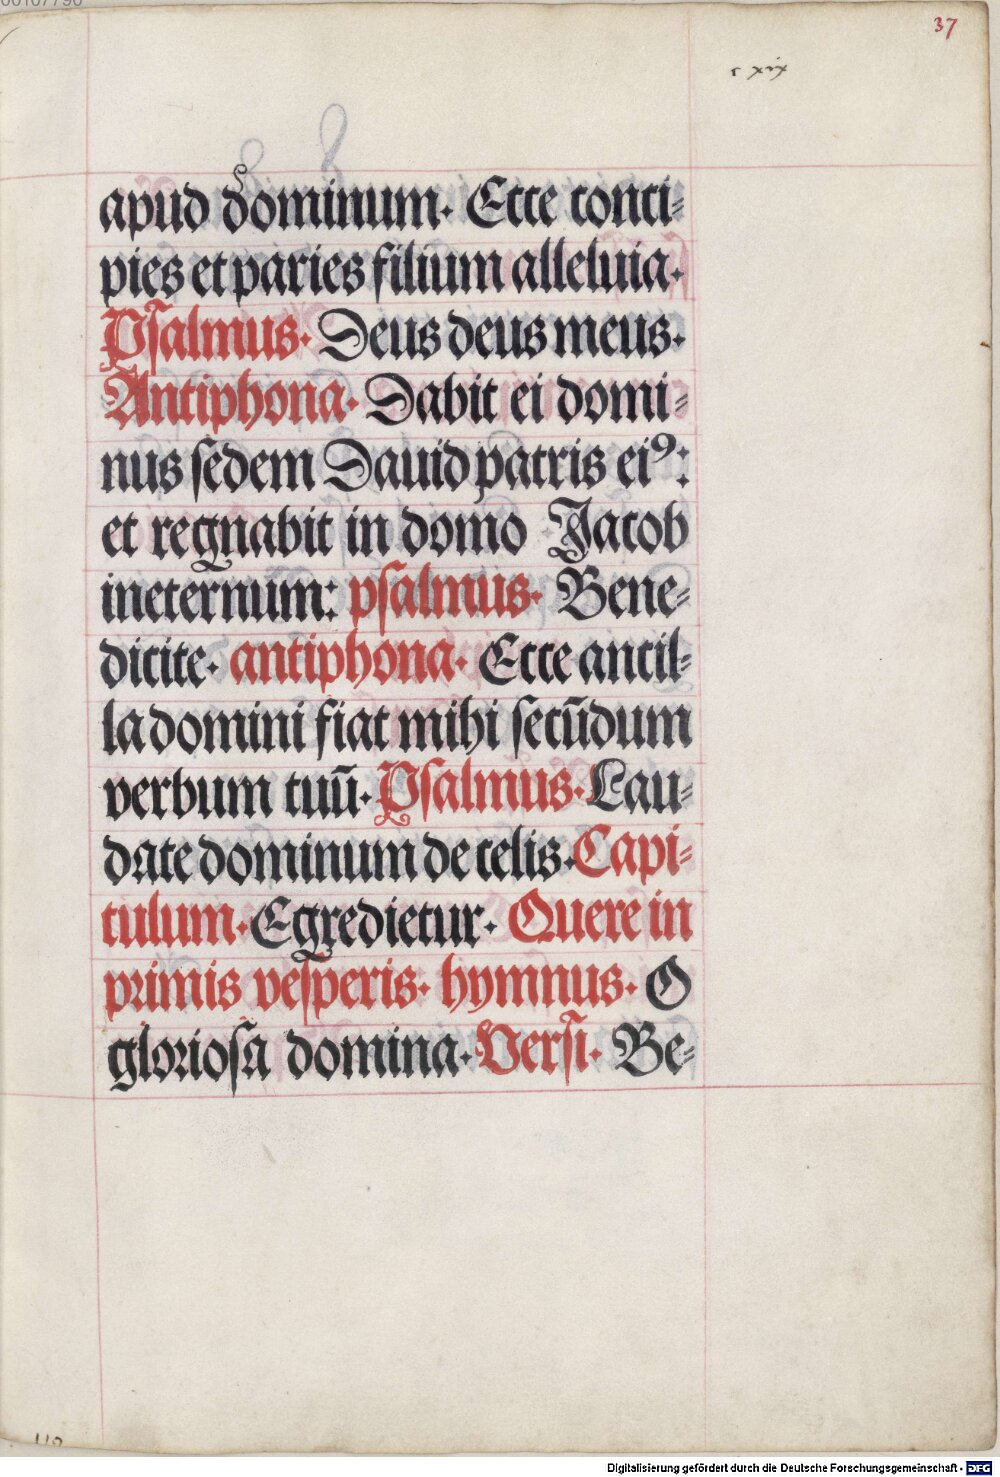 37
c xix
apud dominum. Ecce conci⸗
pies et paries filium alleluia.
Pſalmus. Deus deus meus.
Antiphona. Dabit ei domi⸗
nus ſedem Dauid patris eiꝰ:
et regnabit in domo Jacob
ineternum: pſalmus. Bene⸗
dicite. antiphona. Ecce ancil⸗
la domini fiat mihi ſecūdum
verbum tuū. Pſalmus. Lau⸗
date dominum de celis. Capi⸗
tulum. Egredietur. Quere in
primis veſperis. hymnus. O
glorioſa domina. Verſi. Be⸗
Digitalisierung gefördert durch die Deutsche Forschungsgemeinschaft - DFG